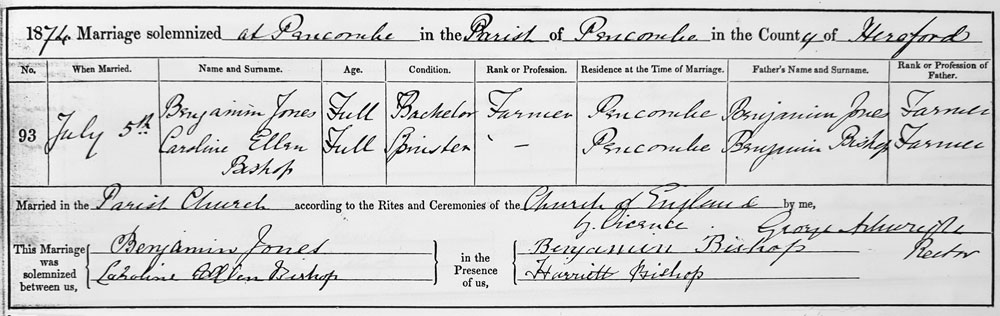 1874. Marriage solemnized at Pencombe in the Parish of Pencombe in the County of Hereford
No. When Married. Name and Surname. Age. Condition. Rank or Profession. Residence at the Time of Marriage. Father's Name and Surname. Rank or Profession of Father.
93 July 5th Benjamin Jones Full Bachelor Farmer Pencombe Benjamin Jones Farmer
Caroline Ellen Bishop Full Spinster - Pencombe Benjamin Bishop Farmer
Married in the Parish Church according to the Rites and Ceremonies of the Church of England by me,
by Licence George Rector
This Marriage was solemnized between us, Benjamin Jones in the Presence of us, Benjamin Bishop
Caroline Ellen Bishop Harriett Bishop